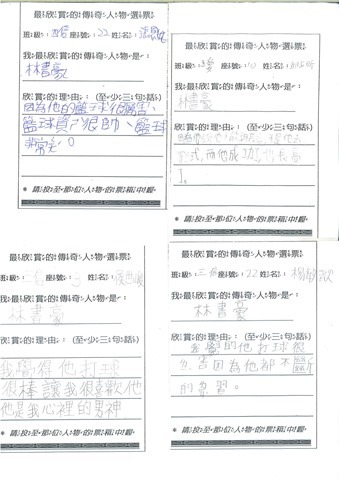 最欣賞的傳奇人物選票
班級: 座號:22 姓名:
我最欣賞的傳奇人物是:
林書豪
欣賞的理由: (至少三句話)
因為他的籃球很厲害
籃球資 很帥、籃球
非常
*請投至那位人物的票箱中喔。
最欣賞的傳奇人物選票
班級: 座號: 姓名:
我最欣賞的傳奇人物是:
林書豪
欣賞的理由: (至少三句話)
式,而他成功
*請投至那位人物的票箱中喔。
最欣賞的傳奇人物選票
班級:三 座號: 姓名:
我最欣賞的傳奇人物是:
林書豪
欣賞的理由: (至少三句話)
我覺得他打球
很棒讓我很喜歡他
他是我心裡的男神
*請投至那位人物的票箱中喔。
最欣賞的傳奇人物選票
班級:三 座號:22 姓名:楊
我最欣賞的傳奇人物是:
林書豪
欣賞的理由: (至少三句話)
我覺的他打球很
因為他都不斷
的練習。
*請投至那位人物的票箱中喔。